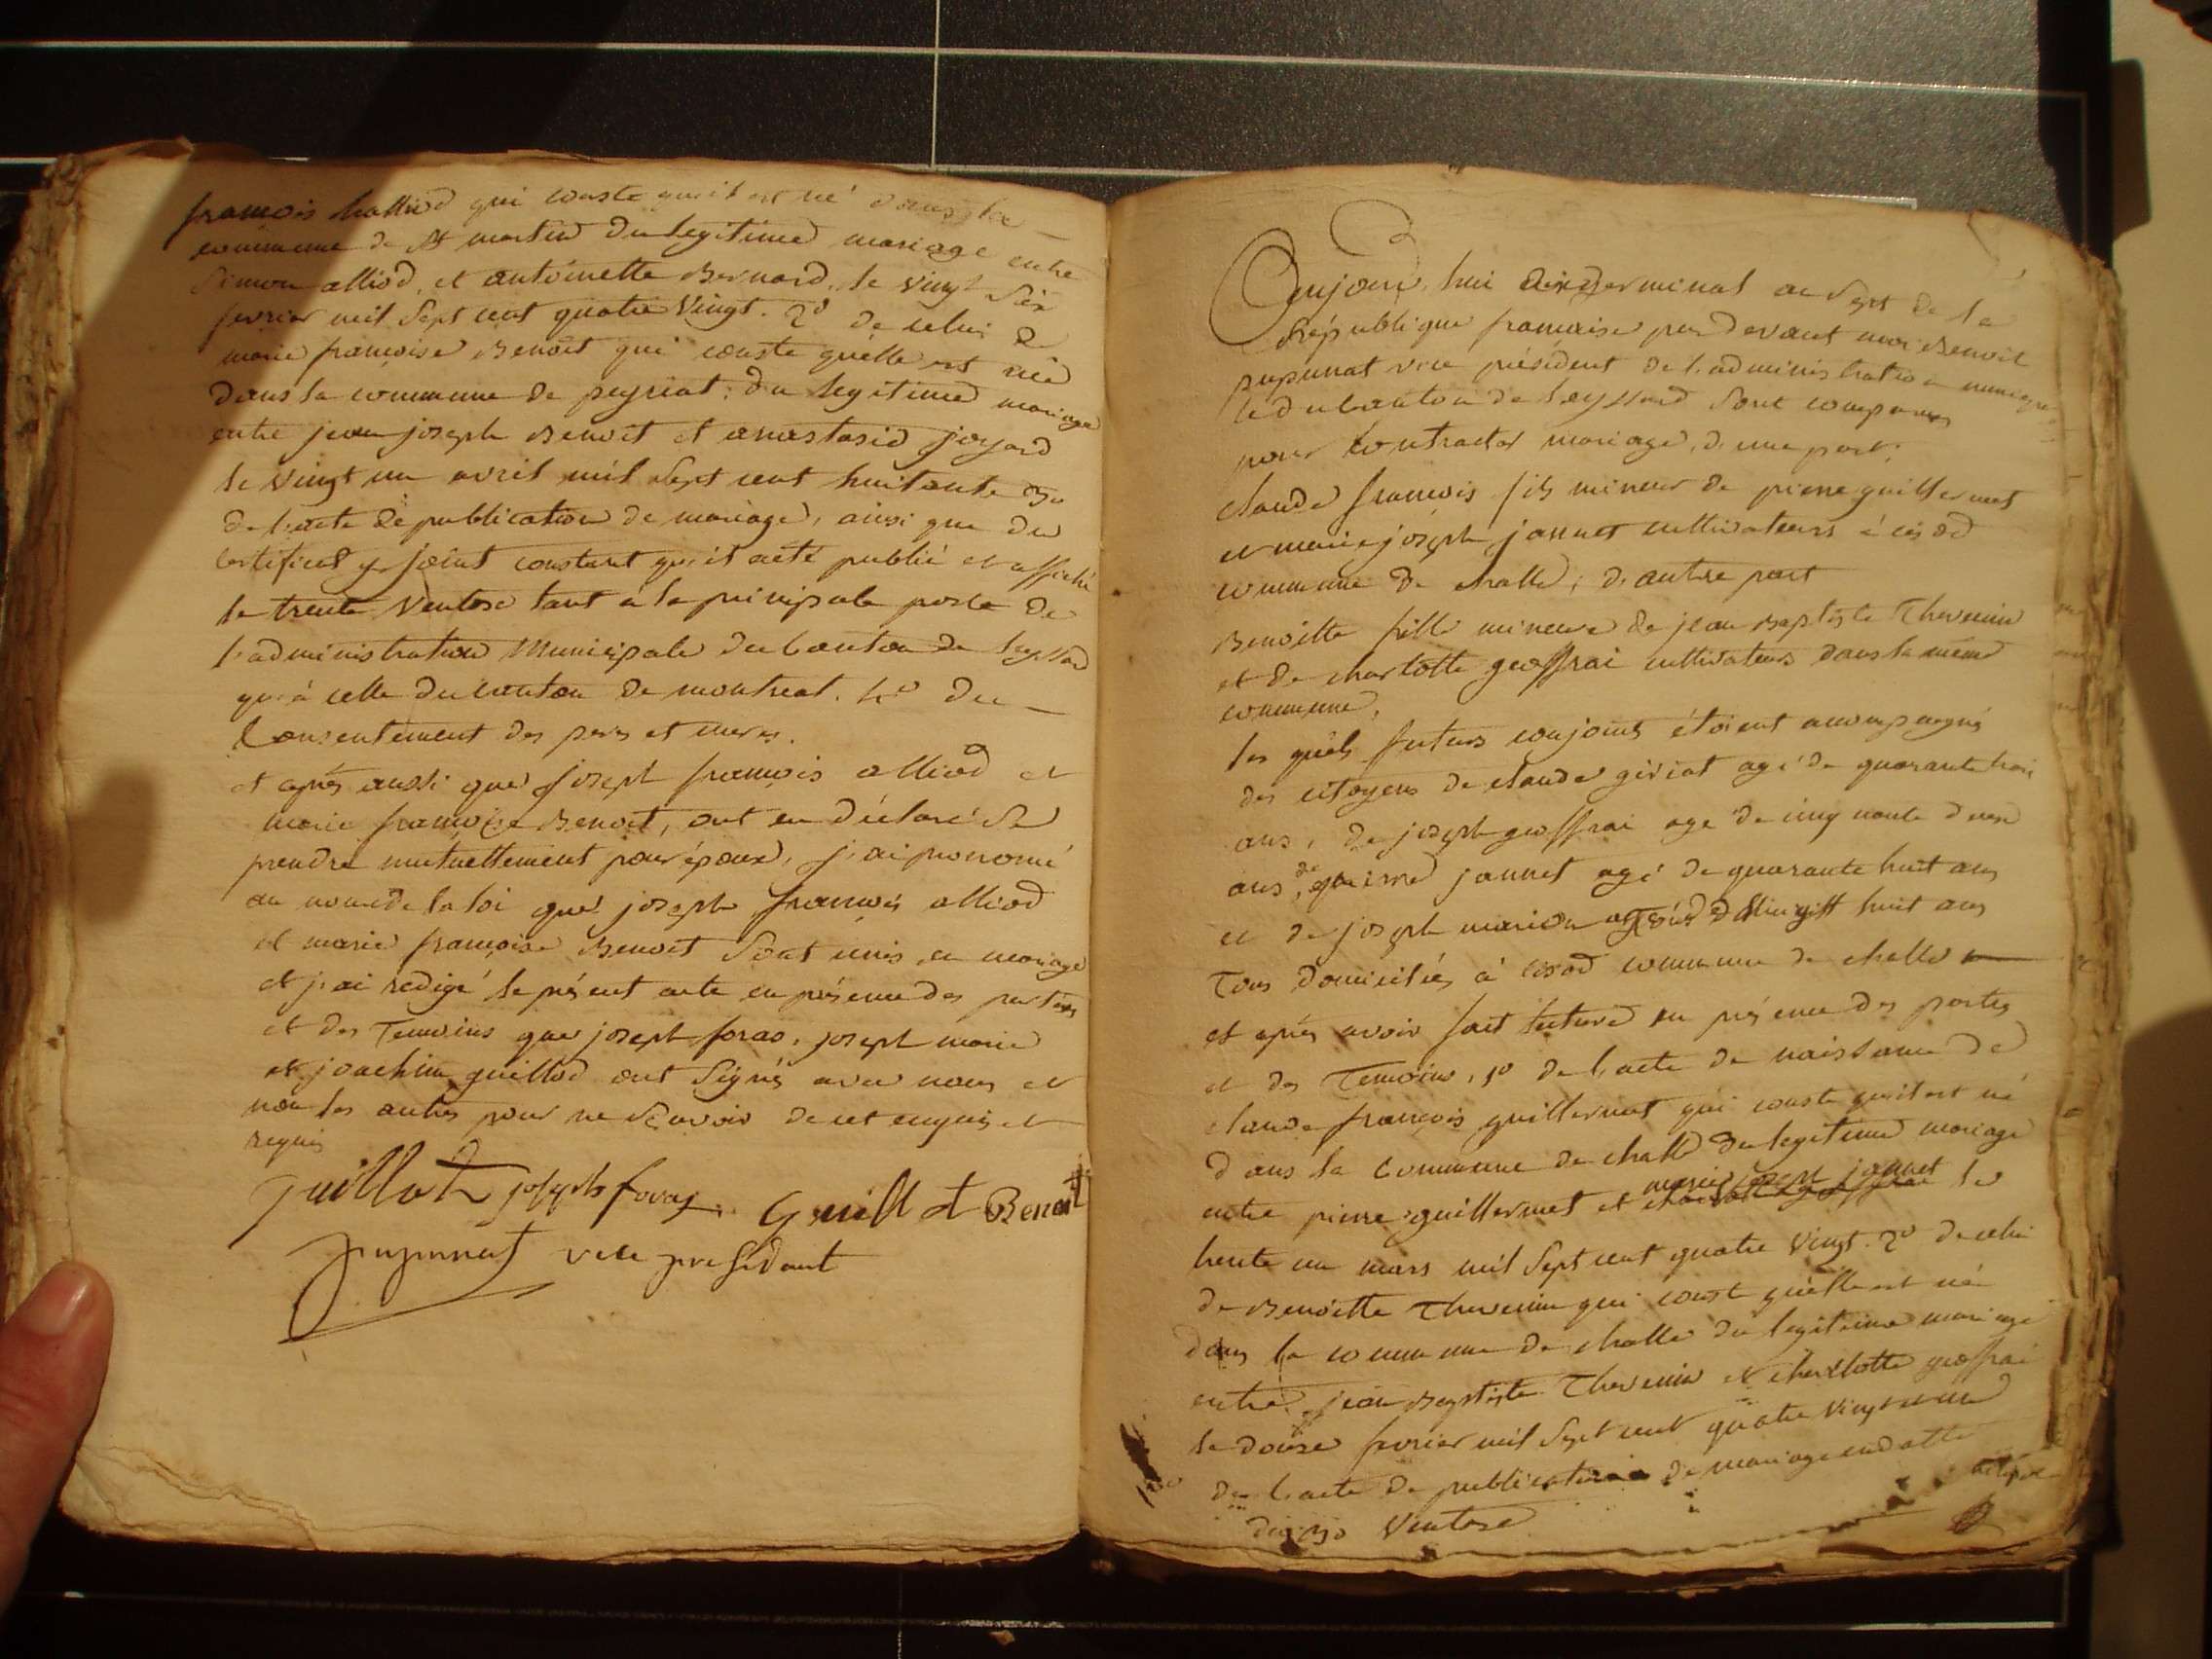 françois halliod qui conste quil est né dans la
commune de st martin du legitime mariage entre
Simon alliod, et antoinette Bernard, le vingt Six
fevrier mil Sept cent quatre Vingt. 2° de celui de
marie françoise Benoit qui conste qu'elle est née
dans la commune de peyriat: du legitime mariage
entre jean joseph Benoit et anastasie joyard
le vingt un avril mil Sept cent huitante 3°
de l'acte de publication de mariage, ainsi que du
Certificat y joint constant qu'il a été publié et affiché
le trente Ventose tant à la principale porte de
l'administration Municipale du Canton de Leyssard
qu'à celle du canton de montreal. 4° du
Consentement des peres et meres.
et après aussi que joseph françois alliod et
marie françoise Benoit, ont eu déclaré se
prendre mutuellement pour époux, j'ai prononcé
au nom de la loi que joseph françois alliod
et marie françoise Benoit Sont unis en mariage
et j'ai redigé le présent acte en présence des parties
et des Temoins que joseph foras, joseph marie
et joachim guillod ont Signés avec nous et
non les autres pour ne Sçavoir de cet enquis et
requis
Guillot joseph foray Guillot Benoit
pupunat vice president
Aujourd'hui dix germinal an Sept de la
République française par devant moi Benoit
pupunat vice président de l'administration municipa
le du Canton de Leyssard Sont comparus
pour Contracter mariage, d'une part;
claude françois fils mineur de pierre guillermet
et marie joseph jannet cultivateurs à cisod
commune de challe; d'autre part
Benoitte fille mineure de jean Baptiste Thevenin
et de charlotte geoffrai cultivateurs dans la même
commune,
les quels futurs conjoints étoient accompagnés
des citoyens de claude giriat agé de quarante trois
ans, de joseph geoffrai age de cinquante deux
ans, de pierre jannet agé de quarante huit ans
et de joseph marion agé de vingt huit ans
Tous domiciliés à cisod commune de challe
et après avoir fait lecture en présence des parties
et des Temoins, 1° de l'acte de naissance de
claude françois guillermet qui conste quil est né
dans la Commune de challe du legitime mariage
entre pierre guillermet et marie joseph jannet le
trente un mars mil Sept cent quatre Vingt. 2° de celui
de Benoitte Thevenin qui conste qu'elle est née
dans la commune de challe du legitime mariage
entre jean Baptiste Thevenin et charlotte geoffrai
le douze fevrier mil Sept cent quatre Vingt un
de l'acte de publication de mariage en datte
du 30 Ventose